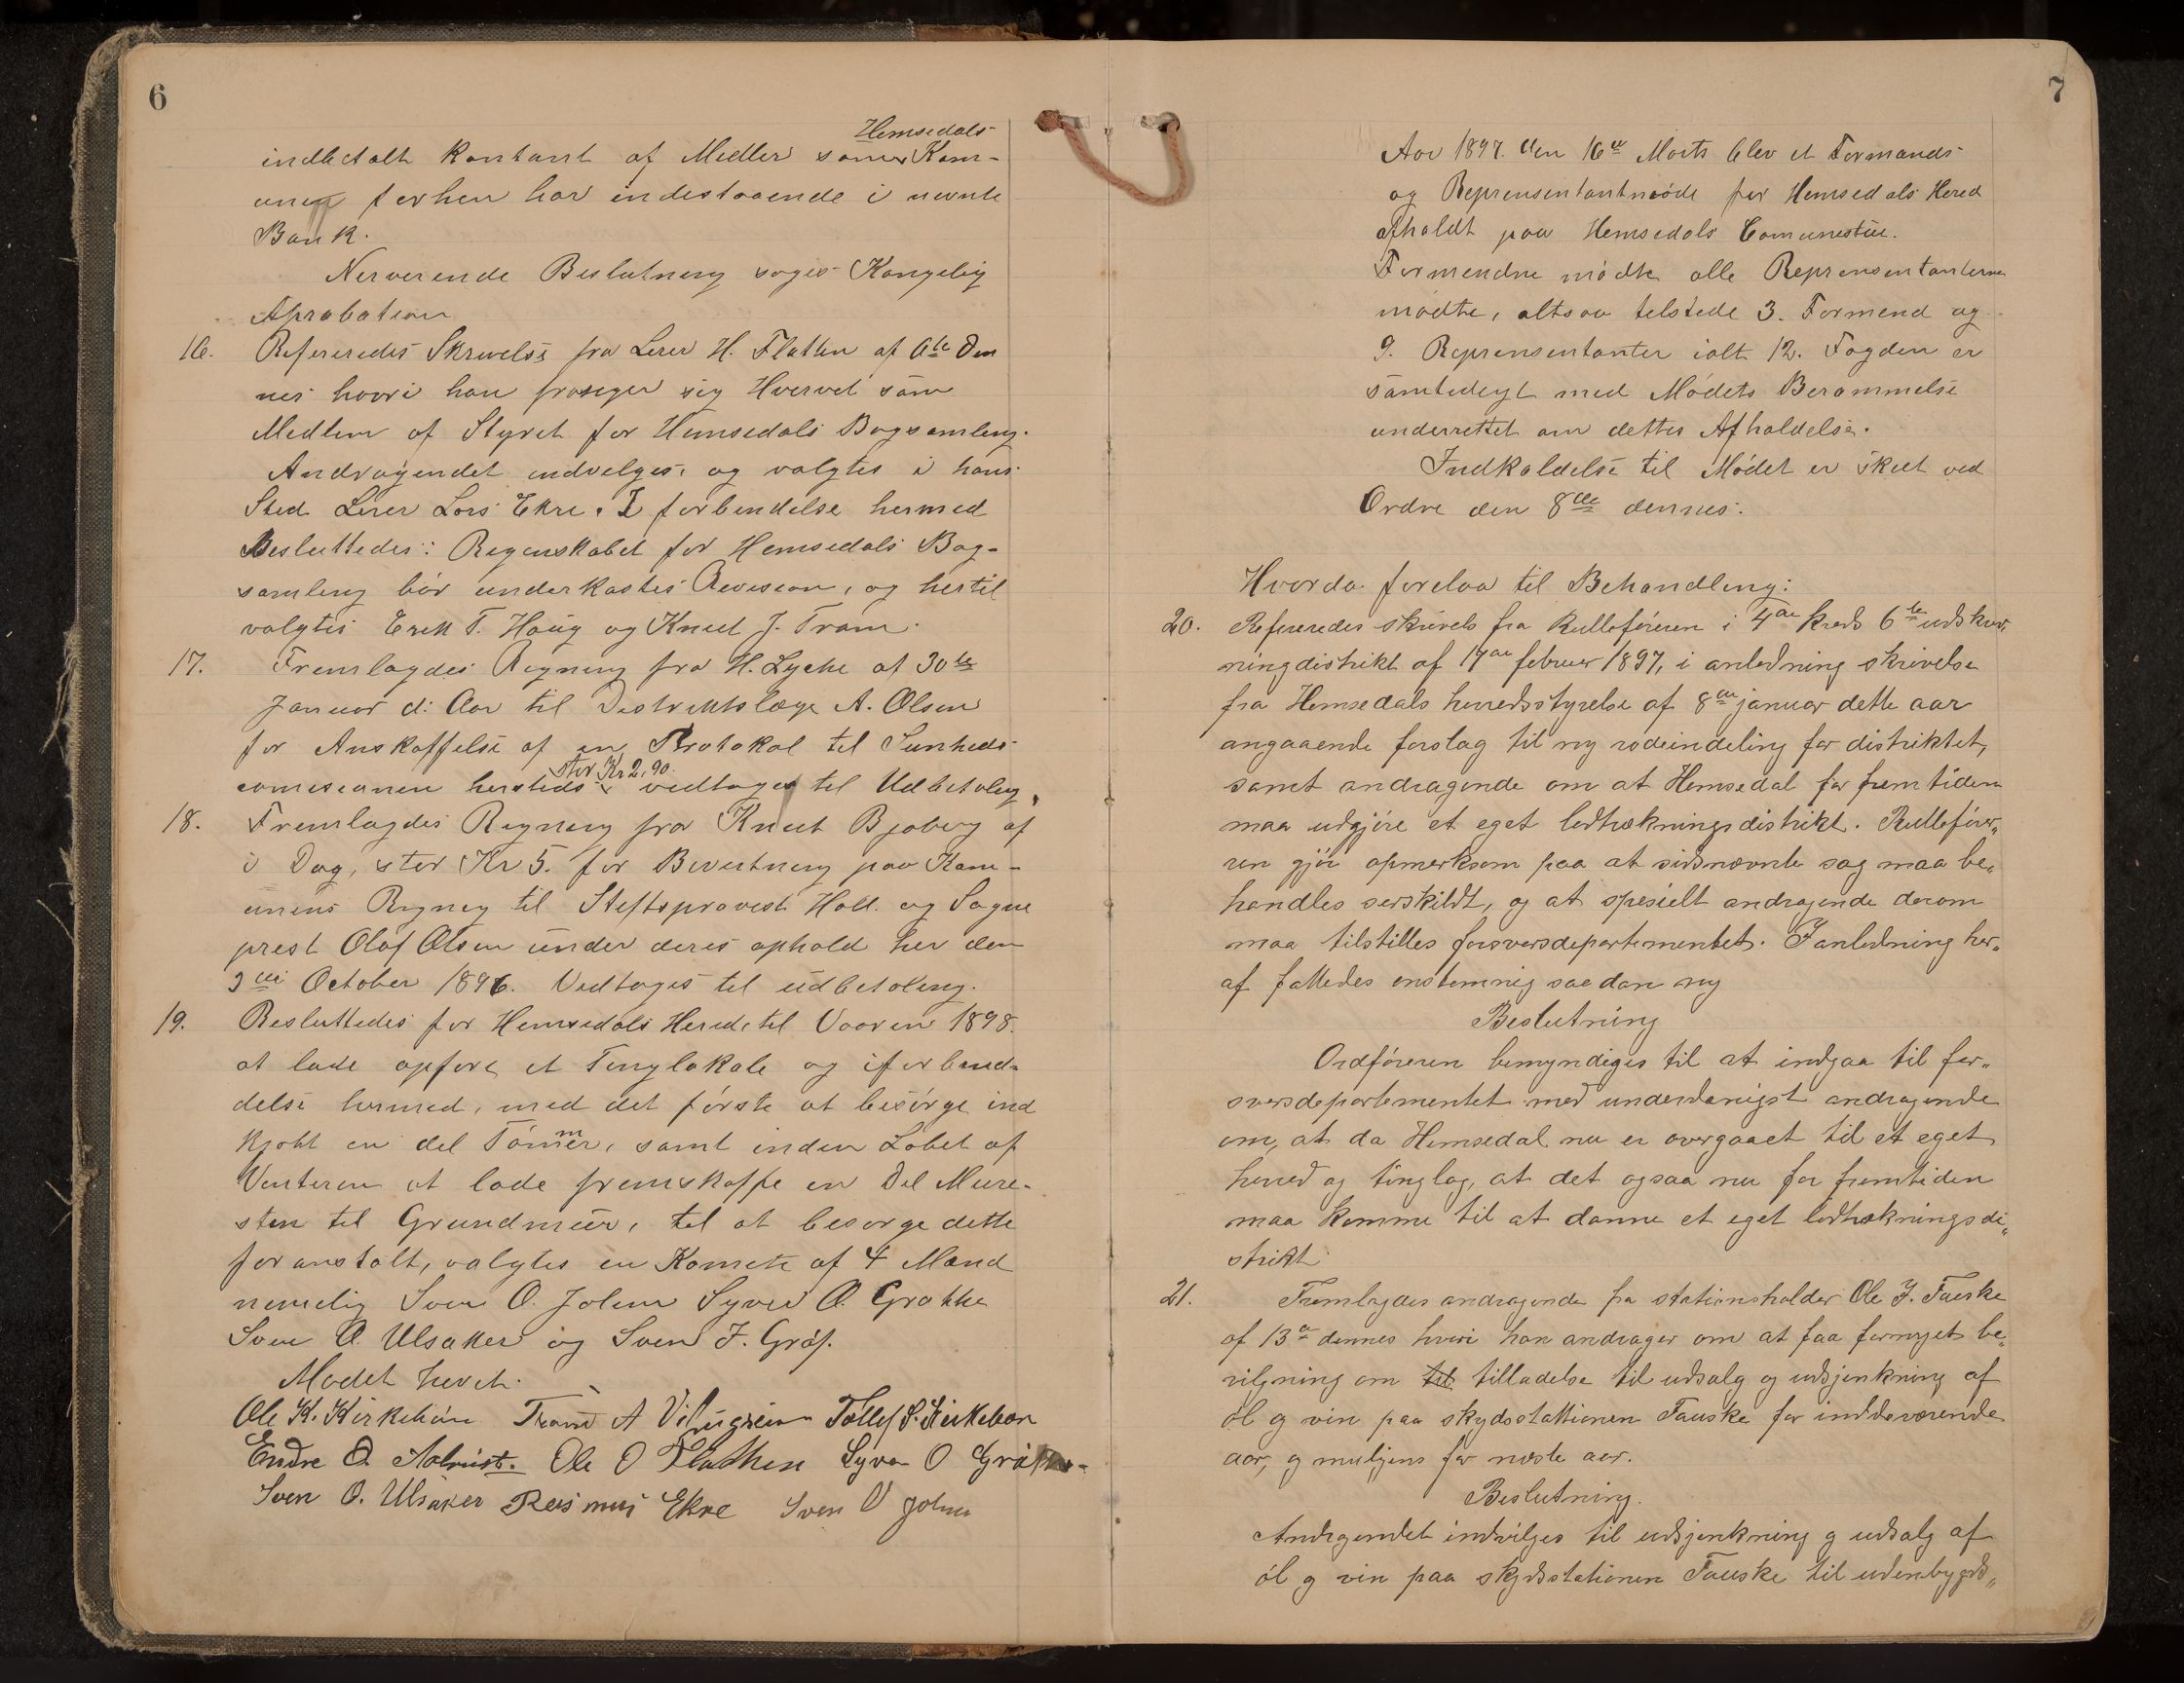 6
Hemsedals
indbetalt kontant af Midler som Kom-
unen forhen har indestaaende i nevnte
Bank.
Nerverende Beslutning søges Kongelig
Aprobation
16. Refereredes Skrivelse fra Lerer H. Flatten af 6te Den
nes hvori han frasiger sig Hvervet som
Medlem af Styret for Hemsedals Bogsamling.
Andragendet indvelges, og valgtes i hans
Sted Lerer Lars Ekre. I forbendelse hermed
Besluttedes: Regenskabet for Hemsedals Bog-
samling bør underkastes Revision, og hertil
valgtes Erik T. Haug og Knud J. Tram.
17. Fremlagdes Regning fra H. Lyche af 30te
Januar d: Aar til Destriktslæge A. Olsen
for Anskaffelse af en Protokol til Sunheds
stor Kr 2,90
comisionen hersteds vedtoges til Udbetaling.
18. Fremlagdes Regning fra Knut Bjøberg af
i Dag, stor Kr 5. for Bevertning paa Kom-
unens Regning til Stiftsprovst Hall og Sogne
prest Olaf Olsen under deres ophold her den
3die October 1896. Vedtoges til udbetaling.
19. Besluttedes for Hemsedals Hered til Vaaren 1898.
at lade opføre et Tinglokale og i forbend-
delse hermed, med det første at besørge ind
kjøbt en del Tømmer, samt inden Løbet af
Venteren at lade fremskaffe en Del Mure-
sten til Grundmur, til at besørge dette
foranstalt, valgtes en Komete af 4 Mænd
nemelig Sven O. Jolen Syver O. Grøtte
Sven O. Ulsaker og Sven J. Grøf.
Mødet hevet.
Ole K. Kirkebøn Trond A Tollef S. Kirkebøn
Endre O. Ole O Flathen Syver O Grøthe
Sven O. Ulsaker Rasmus Ekre Sven O Jolen
7
Aar 1897. den 16de Marts blev et Formands
og Reprensentantmøde for Hemsedals Hered
afholdt paa Hemsedals Comunestue.
Formendne mødte alle Reprensentanterne
mødte, altsaa telstede 3. Formend og
9. Reprensentanter ialt 12. Fogden er
samtidegt med Mødets Berammelse
underrettet om dettes Afholdelse.
Indkaldelse til Mødet er skeet ved
Ordre den 8de dennes.
Hvorda forelaa til Behandling:
20. Refereredes skrivels fra Rulleføreren i 4de kreds 6te udskriv,
ningdistrikt af 17de februar 1897, i anledning skrivelse
fra Hemsedals herredsstyrelse af 8de januar dette aar
angaaende forslag til ny rodeindeling for distriktet,
samt andragende om at Hemsedal for fremtiden
maa udgjøre et eget lodtrækningsdistrikt. Rullefører„
ren gjør opmerksom paa at sidsnævnte sag maa be„
handles serskildt, og at spesielt andragende derom
maa tilstilles forsvarsdepartementet. I anledning her„
af fattedes enstemmig saadan ny
Beslutning
Ordføreren bemyndiges til at indgaa til for„
svarsdepartementet med underdanigst andragende
om, at da Hemsedal nu er overgaaet til et eget
herred og tinglag, at det ogsaa nu for fremtiden
maa komme til at danne et eget lodtrækningsdi„
strikt
21. Fremlagdes andragende fra stationsholder Ole J. Fauske
af 13de dennes hvori han andrager om at faa fornyet be„
vilgning om til tilladelse til udsalg og udsjenkning af
øl og vin paa skydsstattionen Fauske for inddeværende
aar, og muligens for næste aar.
Beslutning.
Andragendet indvilges til udsjenkning og udsalg af
øl og vin paa skydsstationen Fauske til udenbygds„